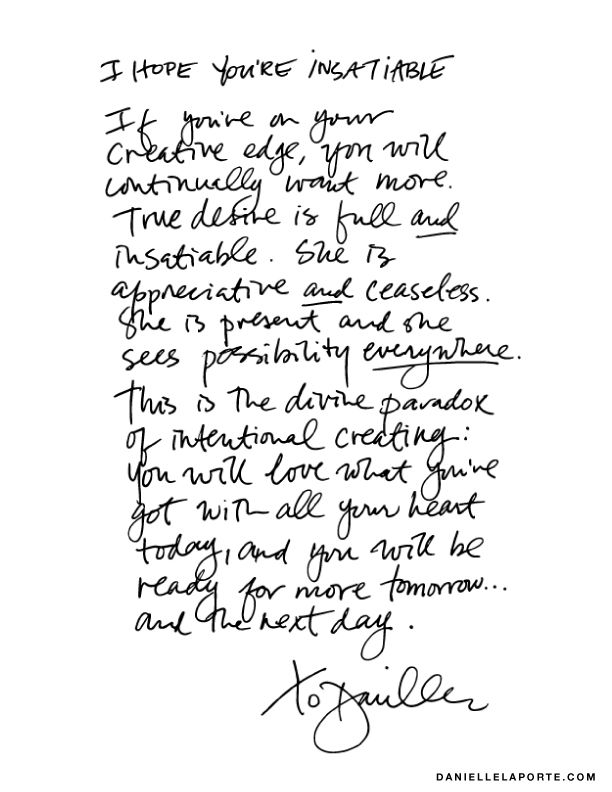 I HOPE YOU'RE INSATIABLE
If you're on your
creative edge, you will
continually want more.
True desire is full and
insatiable. She is
appreciative and ceaseless.
She is present and she
sees possibility everywhere.
This is the divine paradox
of intentional creating:
you will love what you've
got with all your heart
today, and you will be
ready for more tomorrow...
and the next day.
xo Danielle
DANIELLELAPORTE.COM